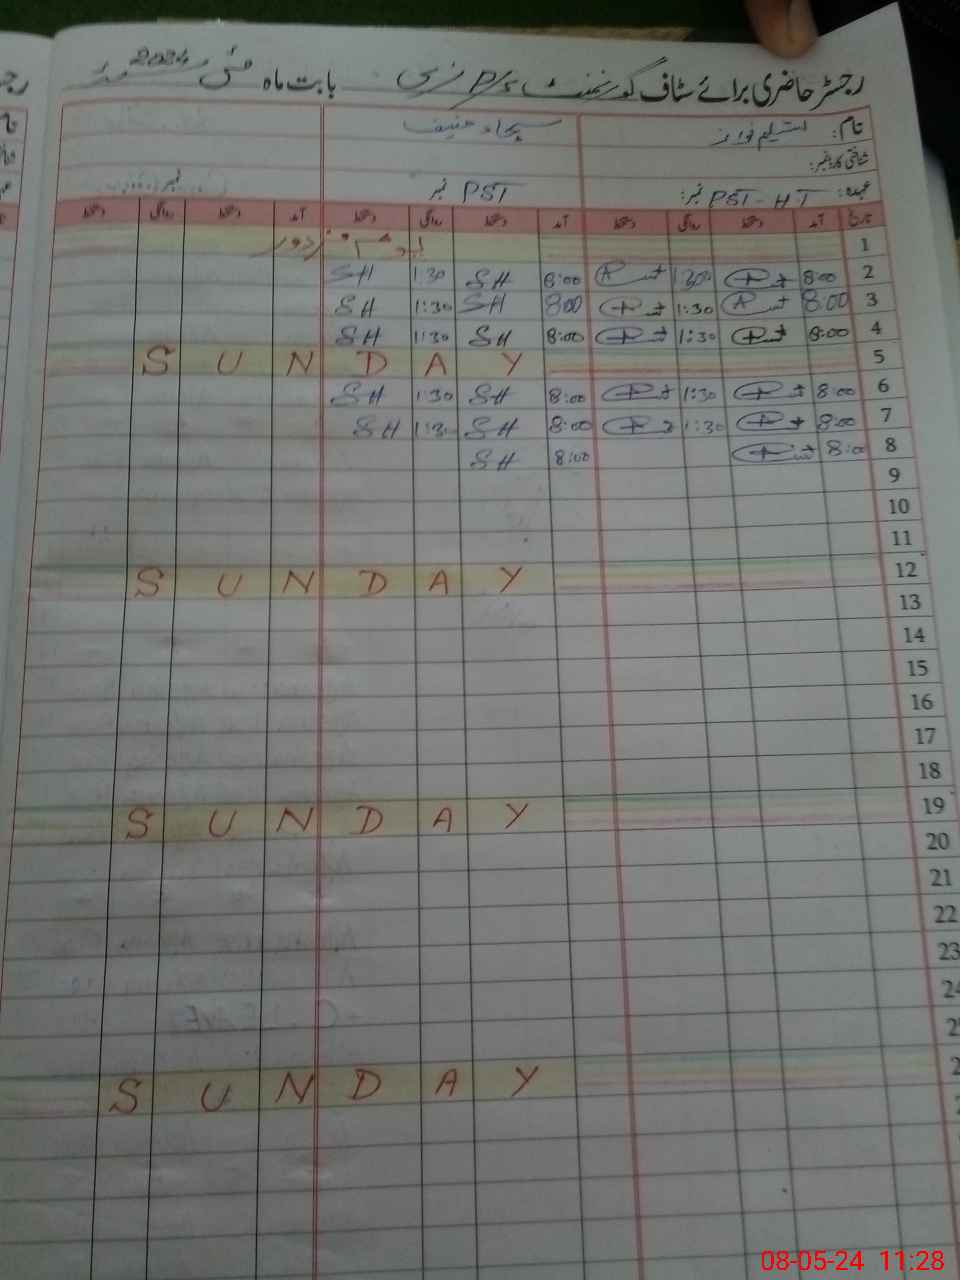 رجسٹر حاضری برائے سٹاف گورنمنٹ P/S بابت ماہ مئی 2024
نام: تسلیم نواز سجاد حنیف
شناختی کارڈ نمبر:
عہدہ: PST-HT نمبر: PST نمبر نمبر
تاریخ آمد دستخط روانگی دستخط آمد دستخط روانگی دستخط آمد دستخط روانگی دستخط
1 یوم مزدور
2 8:00 1:300 8:00 SH 1:30 SH
3 8:00 1:30 800 SH 1:30 SH
4 8:00 1:30 8:00 SH 1:30 SH
5 SUNDAY
6 8:00 1:30 8:00 SH 1:30 SH
7 8:00 1:30 8:00 SH 1:30 SH
8 8:00 8:00 SH
9
10
11
12 SUNDAY
13
14
15
16
17
18
19 SUNDAY
20
21
22
23
24
25
SUNDAY
08-05-24 11:28